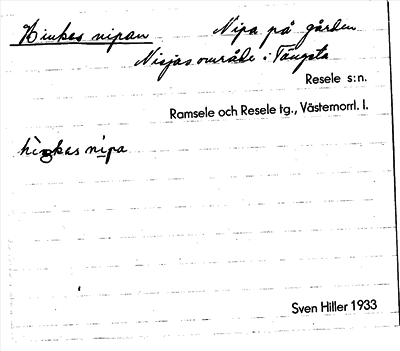 Hinkes nipan Nipa på gården
Nisjas område i Tängsta
Resele s:n.
Ramsele och Resele tg., Västernorrl. l.
hiŋkas nipa
Sven Hiller 1933